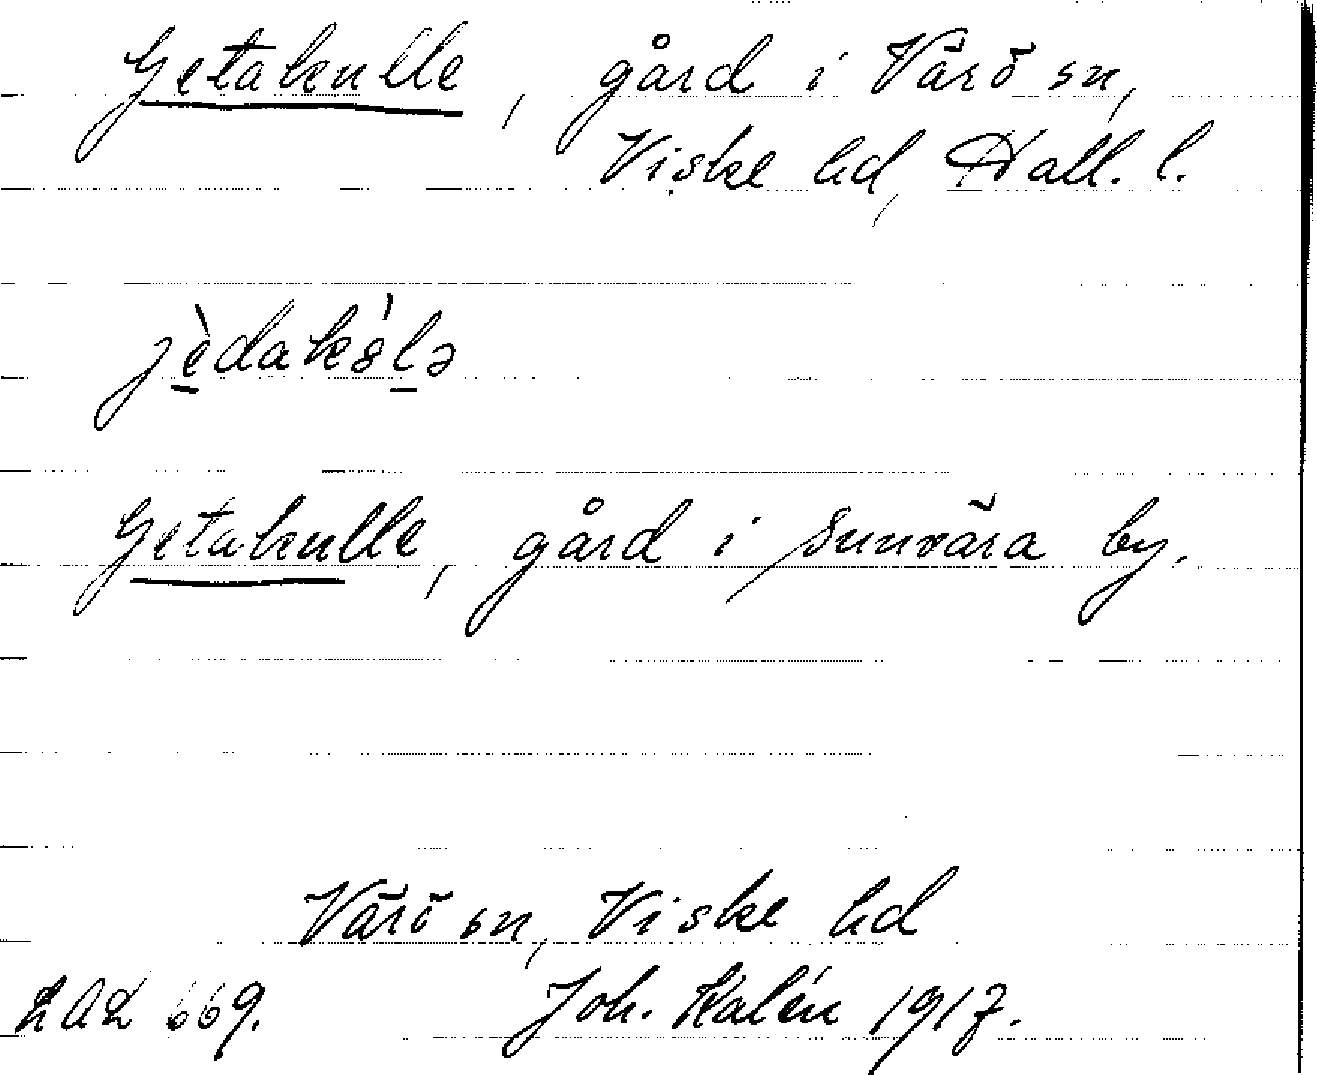 Getakulle, gård i Värö sn,
Viske hd, Hall. l.
jèdakꞷ́lə
Getakulle, gård i Sunvära by.
Värö sn, Viske hd
LAL 669. Joh. Kalén 1917.